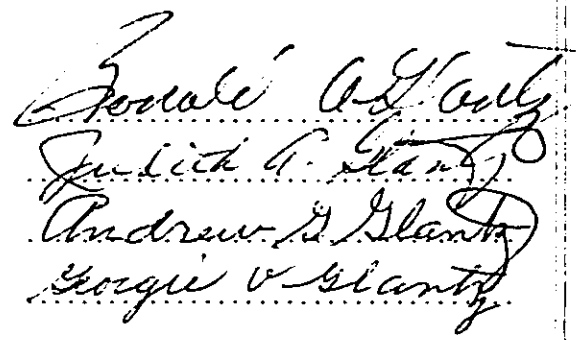 Ronald A Glantz
Judith A. Glantz
Andrew G Glantz
Georgie V Glantz